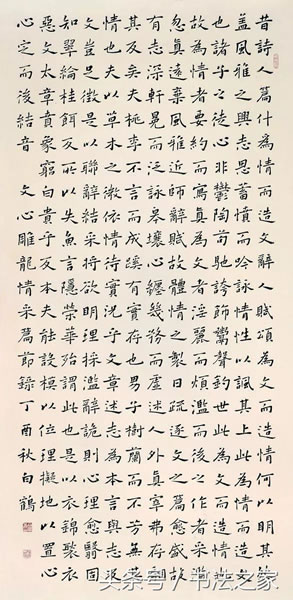 昔詩人篇什為情而造文辭人賦頌為文而造情何以明其然
蓋風雅之興志思蓄憤而吟詠情性以諷其上此為情而造文
也諸子之徒心非鬱陶苟馳誇飾鬻聲釣世此為文而造情也
故為情者要約而寫真為文者淫麗而煩濫而後之作者採濫
忽真遠棄風雅近師辭賦故體情之製日疏逐文之篇愈盛故
有志深軒冕而泛詠皋壤心纏幾務而虛述人外真宰弗存翩
其反矣夫桃李不言而成蹊有實存也男子樹蘭而不芳無其
情也夫以草木之微依情待實況乎文章述志為本言與志反
文豈足徵是以聯辭結采將欲明理採濫辭詭則心理愈翳固
知翠綸桂餌反所以失魚言隱榮華殆謂此也是以衣錦褧衣
惡文太章賁象窮白貴乎反本夫能設模以位理擬地以置心
心定而後結音 文心雕龍情采篇節錄丁酉秋白鶴
头条号/书法之家